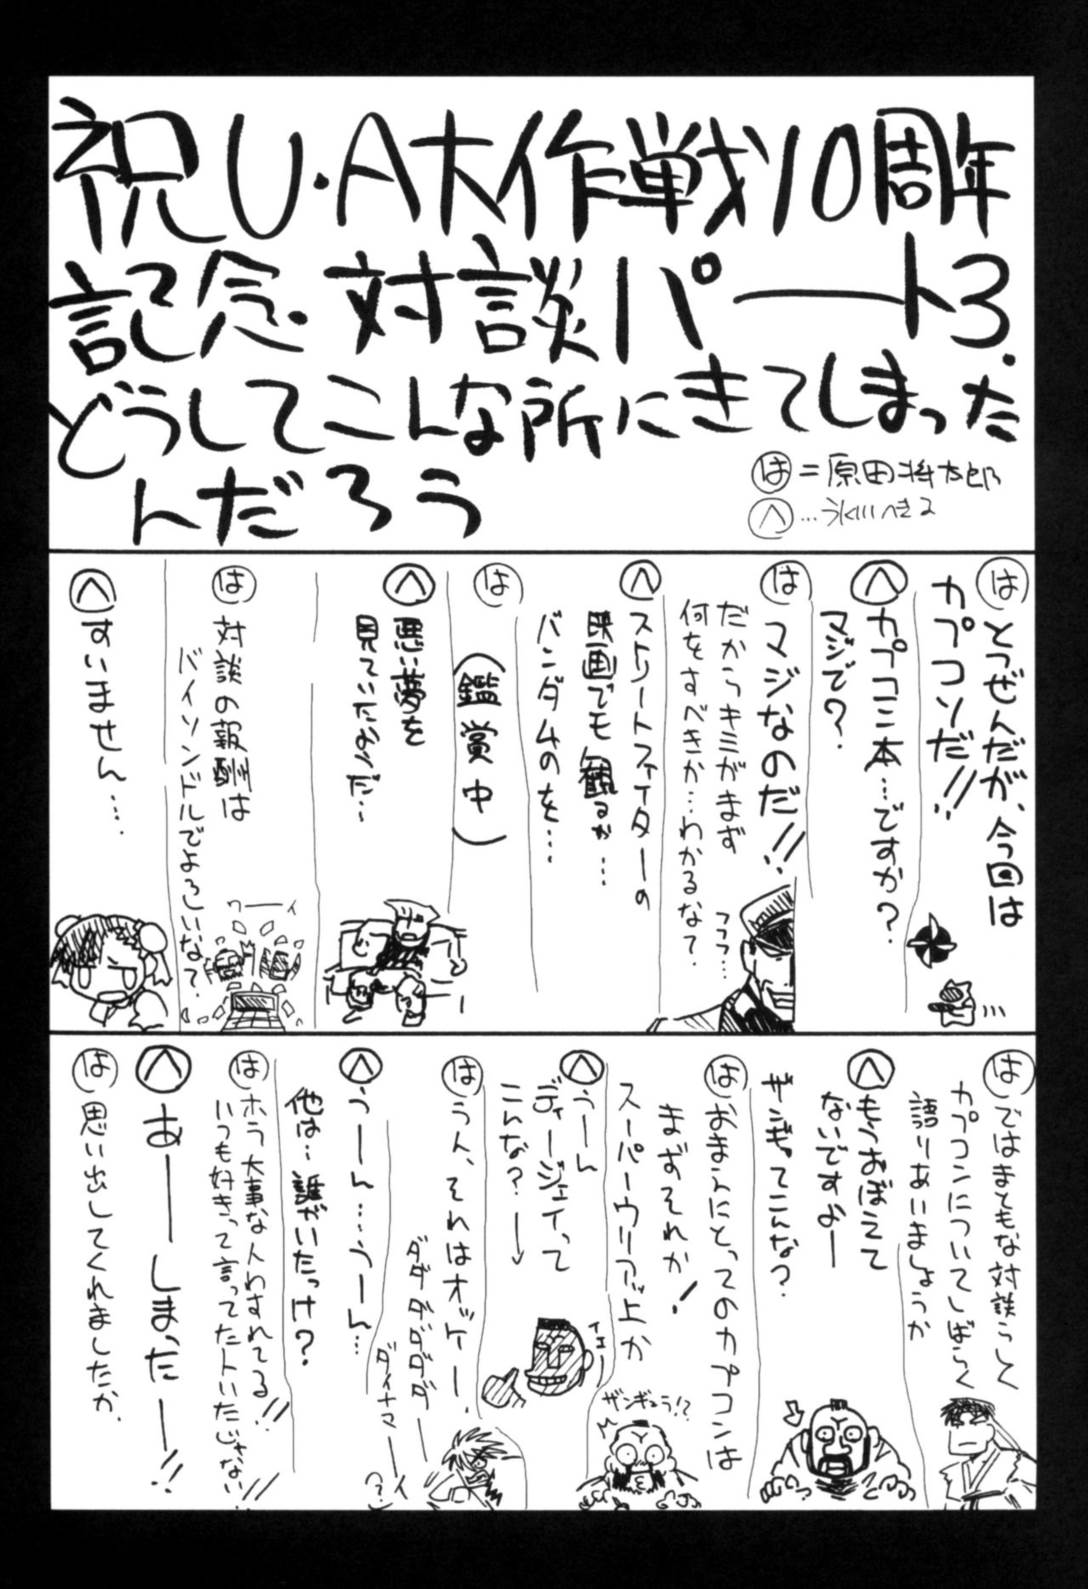 祝U・A大作戦10周年
記念対談パート3.
どうしてこんな所にきてしまった
んだろう
は=原田将太郎
へ…氷川へきる
は とつぜんだが、今回は
カプコンだ!!
へ カプコン本…ですか?
マジで?
は マジなのだ!!
だからキミがまず
何をすべきか…わかるな?
フフフ…
へ ストリートファイターの
映画でも観るか…
バンダムのを…
は
(鑑賞中)
へ 悪い夢を
見ていたようだ…
は 対談の報酬は
バイソンドルでよろしいな?
ワーイ
へ すいません…
は ではまともな対談らしく
カプコンについてしばらく
語りあいましょうか
へ もうおぼえて
ないですよー
ザンギってこんな?
は おまえにとってのカプコンは
まずそれか!
スーパーウリアッ上か
ザンギュラ!?
へ うーん
ディージェイって
こんな?→
イエー
は うん、それはオッケー。
ダダダダダダー
ダイナマーイ
(?)
へ うーん…うーん…
他は…誰がいたっけ?
は ホラ大事な人わすれてる!!
いつも好きって言ってた人いたじゃない!!
へ あーーしまったー!!
は 思い出してくれましたか、